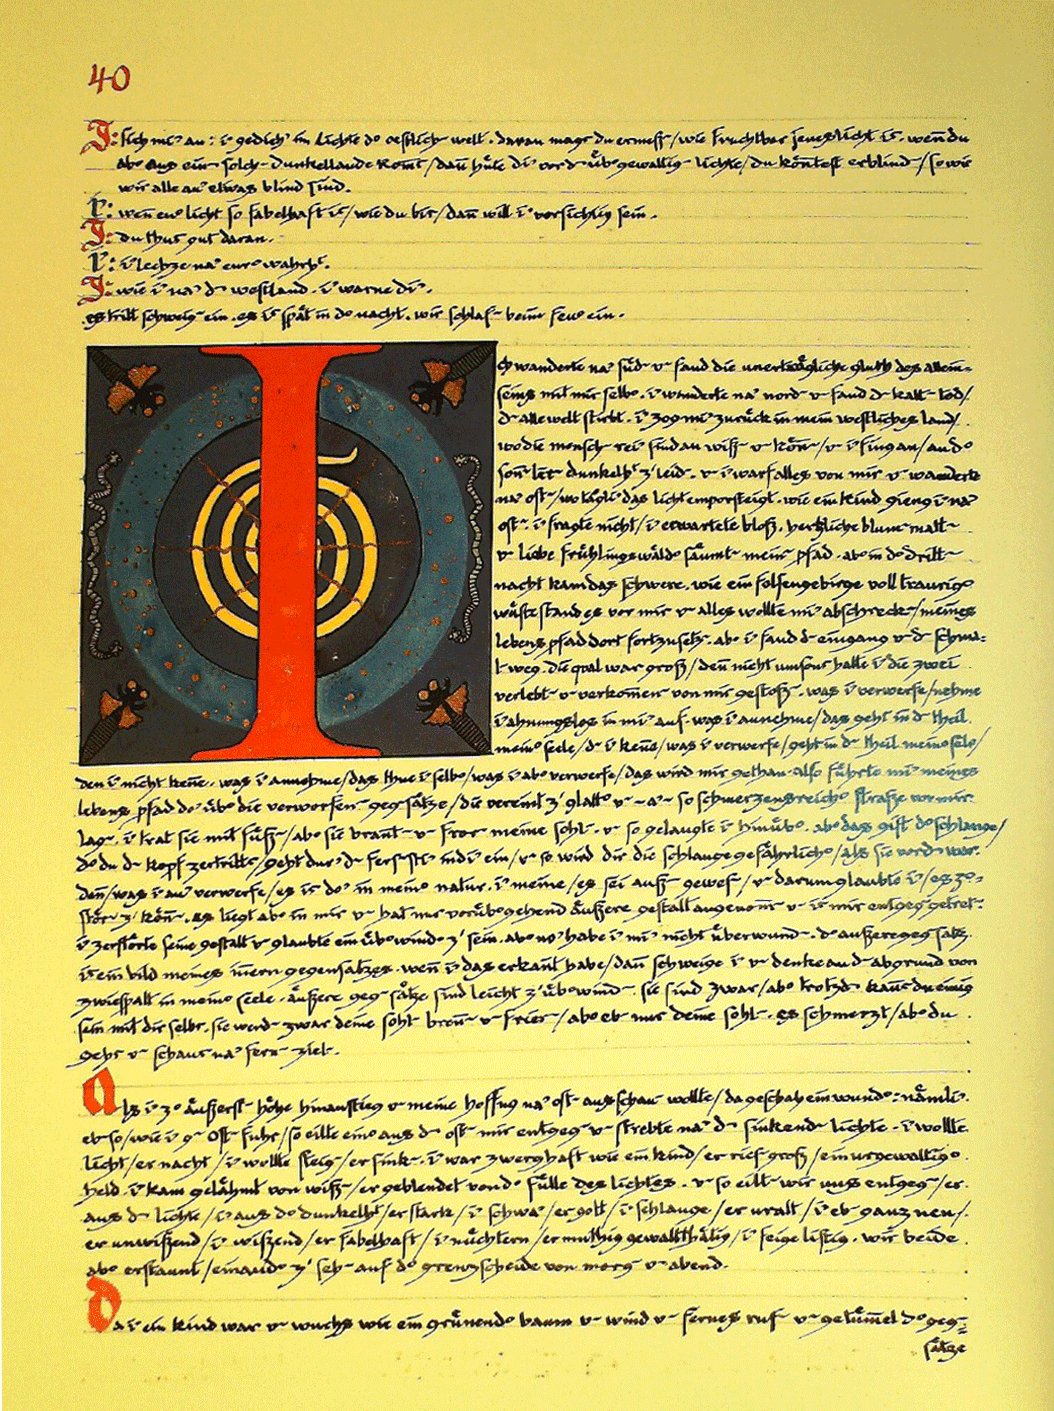 40
I: sieh mi' an: i̅ gedieh' im lichte do oestlich- welt. daran mags du ermess-/wie fruchtbar jenes licht is. wen̄ du
abo aus ein- solch- dunkellande komst/dan̄ hüte di' vor d- übogewaltig- lichte/du kön̄test erblind-/so wie
wir alle an etwas blind sind.
I: wen̄ euo licht so fabelhaft is/wie du bis/dan̄ will i̅ vorsichtig sein.
I: du thus gut daran.
I: i̅ lechze na' euro wahrht.
I: wie i̅ na' d- westland. i̅ warne di'.
es tritt schweig- ein. es is spät in do nacht. wir schlaf- beim feuo ein.
ch wanderte na' süd- u- fand die unerträgliche gluth des allein=
seins mit mir selbo. i̅ wanderte na' nord- u- fand d- kalt- tod/
d- alle welt stirbt. i̅ zog mi' zurück in mein westliches land/
wo die mensch- rei' sind an wiss- u- kön̄-/u- i̅ fing an/an do
son̄- leer- dunkelht z' leid-. u- i̅ warf alles von mir u- wanderte
na' ost-/wo tägli' das licht emporsteigt. wie ein kind gieng i̅ na'
ost-. i̅ fragte nicht/i̅ erwartete bloß. herzliche blum- matt-
u- liebe frühlingswäldo säumt- mein- pfad. abo in do dritt-
nacht kam das schwere. wie ein felsengebirge voll traurigo
wüste stand es vor mir u- alles wollte mi' abschreck-/meines
lebens pfad dort fortzusetz-. abo i̅ fand d- eingang u- d- schma-
l- weg. die qual war groß/den̄ nicht umsons hatte i̅ die zwei
verlebt- u- verkomen̄- von mir gestoß-. was i̅ verwerfe/nehme
i̅ ahnungslos in mi' auf. was i̅ annehme/das geht in d- theil
meino seele/d- i̅ ken̄e/was i̅ verwerfe/geht in d- theil meino seele/
den i̅ nicht ken̄e. was i̅ annehme/das thue i̅ selbo/was i̅ abo verwerfe/das wird mir gethan. also führte mi' meines
lebens pfad do' übo die verworfen- gegsätze/die vereint z' glatto u- -a'- so schmerzensreicho straße vor mir
lag-. i̅ trat sie mit füß-/abo sie brant- u- fror- meine sohl-. u- so gelangte i̅ hinübo. abo das gift do schlange/
do du d- kopf zertritts/geht dur' d- fersensti' in di' ein/u- so wird dir die schlange gefährlicho/als sie vordem war.
den̄/was i̅ au' verwerfe/es is do' in meino natur. i̅ meine/es sei auß- gewes-/u- darum glaubte i̅/es zer-
stör- z' kön̄-. es liegt abo in mir u- hat nur vorübogehend äußere gestalt angenom̄- u- is mir entgeg- getret-.
i̅ zerstörte seine gestalt u- glaubte ein übowindo z' sein. abo no' habe i̅ mi' nicht überwund-. do äußere gegsatz
is ein bild meines in̄ern gegensatzes. wen̄ i̅ das erkan̄t habe/dan̄ schweige i̅ u- denke an d- abgrund von
zwiespalt in meino seele. äußere gegsätze sind leicht z' übowind-. sie sind zwar/abo trotzdem kans du einig
sein mit dir selbs. sie werd- zwar deine sohl- bren̄- u- frier-/abo eb- nur deine sohl-. es schmerzt/abo du
gehs u- schaus na' fern- ziel-.
Als i̅ zo äußerst- höhe hinaufstieg u- meine hoffnug na' ost- ausschau- wollte/da geschah ein wundo: nämli'
eb- so/wie i̅ g- ost- fuhr/so eilte eino aus d- ost- mir entgeg- u- strebte na' d- sinkend- lichte. i̅ wollte
licht/er nacht/i̅ wollte steig-/er sink-. i̅ war zwerghaft wie ein kind/er ries-groß/ein urgewaltigo
held. i̅ kam gelähmt von wiss-/er geblendet von do fülle des lichtes. u- so eilt- wir uns entgeg-/er
aus d- lichte/i̅ aus do dunkelht/er stark/i̅ schwa'/er gott/i̅ schlange/er uralt/i̅ eb- ganz neu/
er unwissend/i̅ wissend/er fabelhaft/i̅ nüchtern/er muthig gewaltthätig/i̅ feige listig. wir beide
abo erstaunt/einando z' seh- auf do grenzscheide von morg- u- abend.
Da i̅ ein kind war u- wuchs wie ein grünendo baum u- wind u- fernes ruf- u- getüm̄el do geg-
sätze